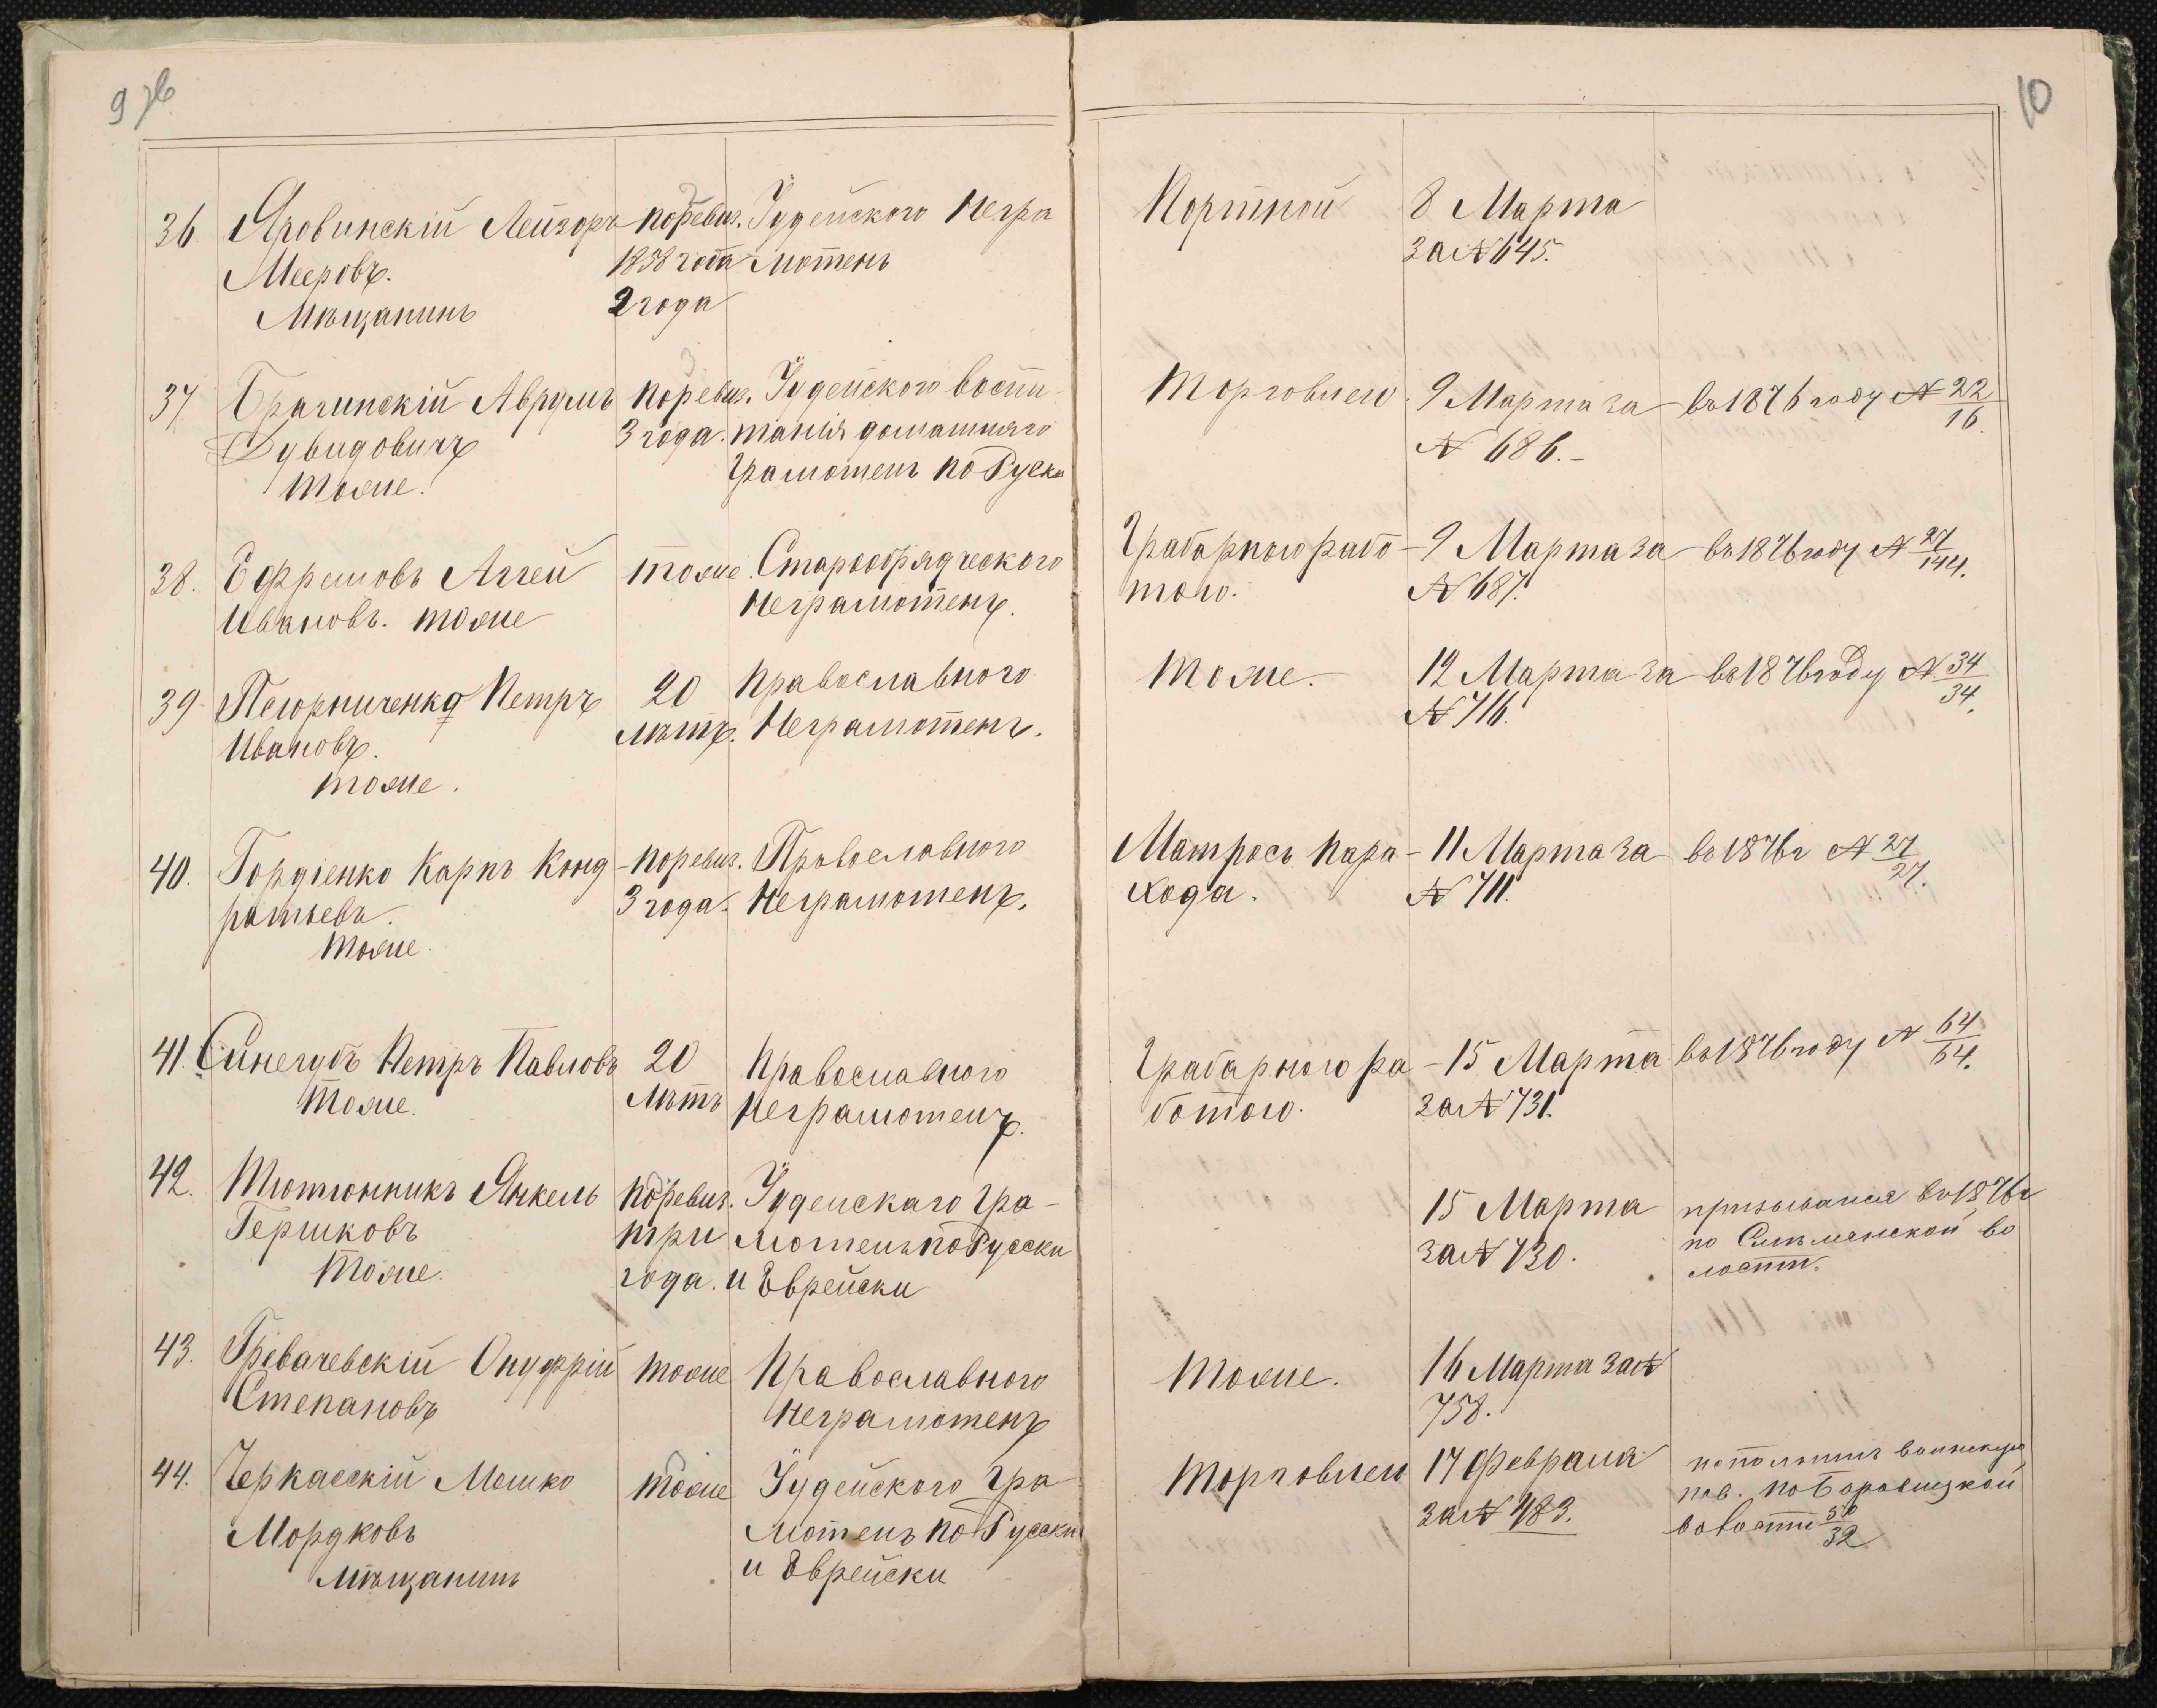 9 об
10
36. Яровинскій Лейзоръ по ревиз. Іудейского Негра Портной 8 Марта
Мееровъ. 1858 года мотенъ за № 645.
Мѣщанинъ 2 года
37 Брагинскій Аврумъ по ревиз. Іудейского воспи- Торговлею. 9 Марта за въ 1876 году № 22/16.
Дувидовичъ 3 года. танія домашняго № 686.-
тоже. Грамотенъ по Руски
38. Ефремовъ Аггей тоже. Старообрядческого Грабарною рабо- 9 Марта за въ 1876 году № 27/144.
Ивановъ. тоже Неграмотенъ. тою. № 687.
39. Петръ 20 Православного тоже. 12 Марта за въ 1876 году № 34/34.
Ивановъ. лѣтъ. Неграмотенъ. № 716.
тоже.
40. Гордіенко Карпъ Конд- по ревиз. Православного Матросъ пара- 11 Марта за въ 1876 г № 27/27.
ратьевъ. 3 года. Неграмотенъ. хода. № 711.
тоже.
41. Синегубъ Петръ Павловъ 20 Православного Грабарною ра- 15 Марта въ 1876 году № 64/64.
тоже. лѣтъ Неграмотенъ. ботою. за № 731.
42. Тютюнникъ Янкель по ревиз. Іудейскаго Гра- 15 Марта призывался въ 1876 г
Гершковъ три мотенъ по Русски за № 730. по Смѣлянской во
тоже. года. и Еврейски лости.
43. Онуфрій тоже Православного тоже. 16 Марта за №
Степановъ Неграмотенъ 758.
44. Черкасскій Мошко тоже Іудейского Гра- Торговлею 17 Февраля воинскую
Мордковъ мотенъ по Русски за № 483. пов. по
Мѣщанинъ и Еврейски волости 50/32